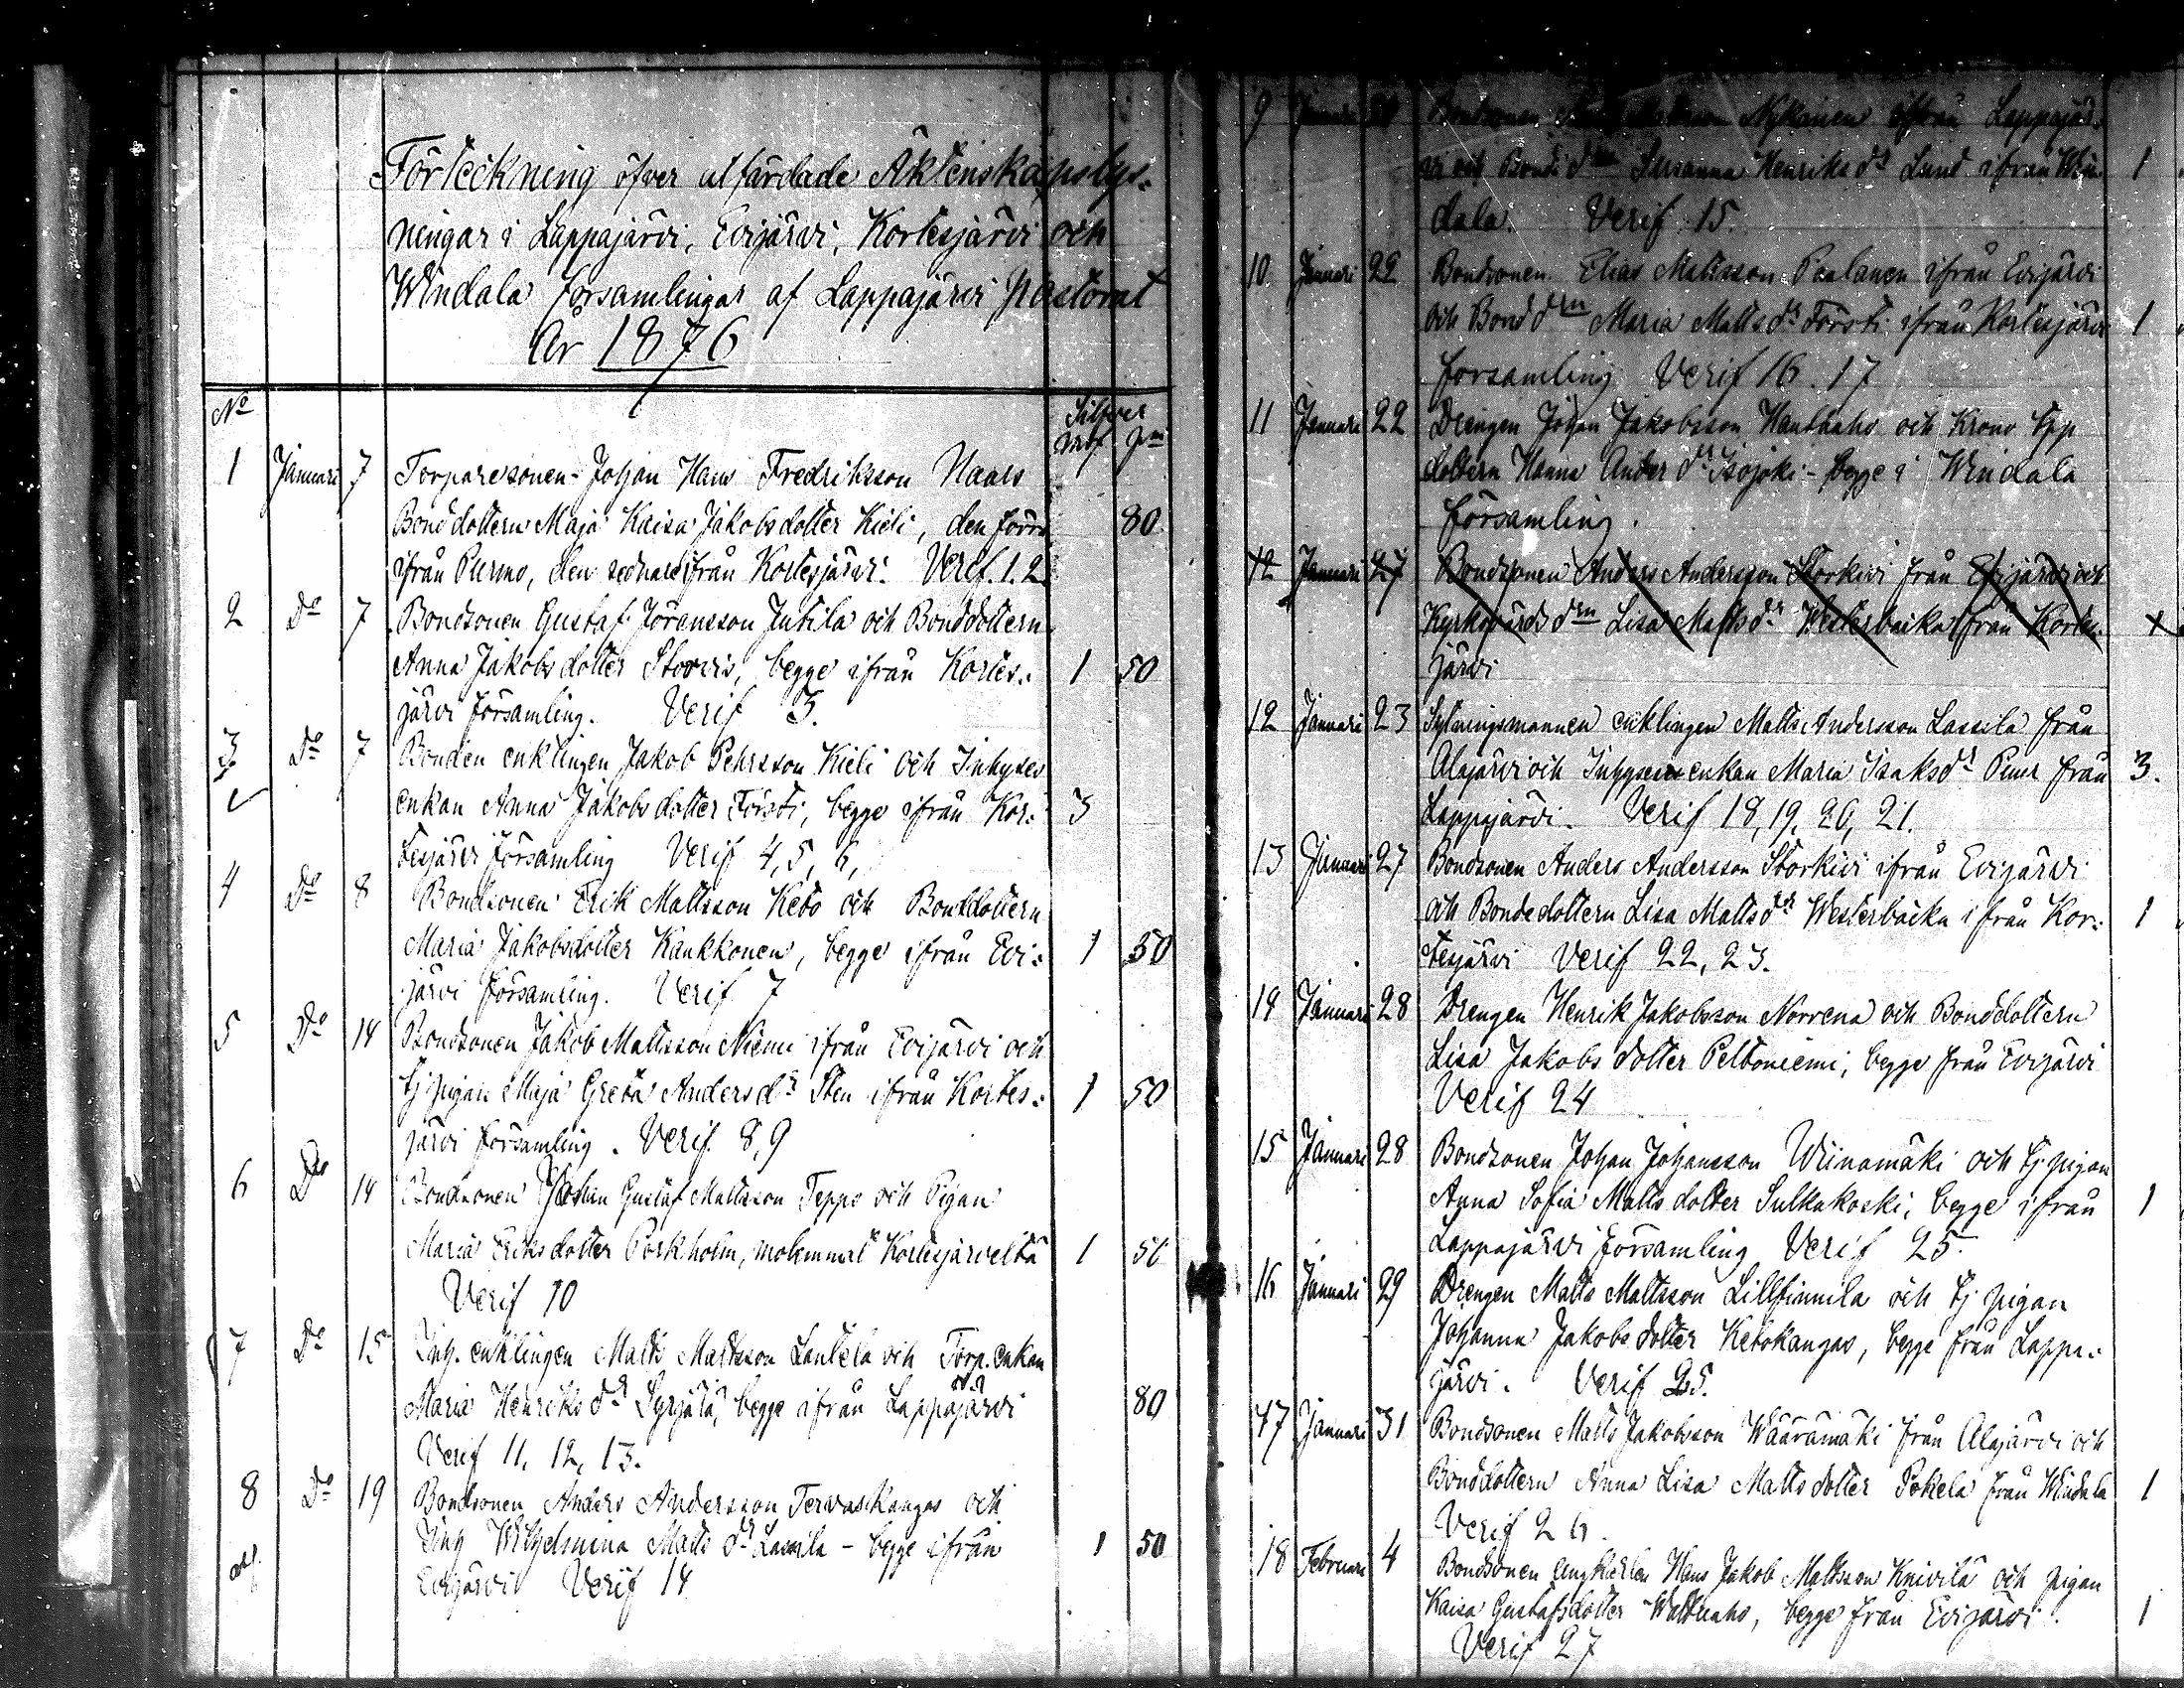 Förteckning öfver utfärdade Äktenskapslys-
ningar i Lappajärvi, Evijärvi, Kortesjärvi och
Windala församlingar af Lappajärvi pastorat
År 1876
No Silfver
mrk pni
1 Januari 7 Torparesonen Johan Hans Fredriksson Haars
Bonddottern Maja Kaisa Jakobsdotter Kieli, den förra 80
ifrån Purmo, den sednare ifrån Kortesjärvi. Verif. 1. 2
2 Do 7 Bondsonen Gustaf Jöransson Jutila och Bonddottern
Anna Jakobsdotter Storvis, begge ifrån Kortes- 1 50
järvi församling. Verif 3.
3 Do 7 Bonden enklingen Jakob Pehrsson Kieli och Inhyses
enkan Anna Jakobsdotter Försti, begge ifrån Kor- 3
tesjärvi församling Verif 4, 5, 6,
4 Do 8 Bondsonen Erik Mattsson Keto och Bonddottern
Maria Jakobsdotter Kaukkonen, begge ifrån Evi- 1 50
järvi församling. Verif 7
5 Do 14 Bondsonen Jakob Mattsson Niemi ifrån Evijärvi och
tj. pigan Maja Greta Andersdr Sten ifrån Kortes- 1 50
järvi församling. Verif. 8, 9
6 Do 14 Bondsonen Johan Gustaf Mattsson Teppo och Pigan
Maria Eriksdotter Porkholm, molemmat Kortesjärveltä 1 50
Verif 10
7 Do 15 Inh. enklingen Matts Mattsson Lantela och Torp. enkan
Maria Henriksdr Syrjälä, begge ifrån Lappajärvi 80
Verif 11, 12, 13.
8 Do 19 Bondsonen Anders Andersson Tervaskangas och
Inh Wilhelmina Matts dr Lassila - begge ifrån 1 50
Evijärvi Verif 14
9 Januari Bondsonen Nykänen ifrån Lappajär-
vi och Bond drn Susanna Henriksdr Lund ifrån Win- 1
dala. Verif 15.
10 Januari 22 Bondsonen Elias Mattsson Paalanen ifrån Evijärvi
och Bond drn Maria Mattsdr Försti ifrån Kortesjärvi 1
församling Verif 16. 17
11 Januari 22 Drengen Johan Jakobsson Hanhiaho och Krono tpp
dottern Hanna Anders dr Isojoki - begge i Windala
församling.
12 Januari 27 Bondsonen Anders Andersson Storkivi från Evijärvi och
Kyrkovärds drn Lisa Mattsdr Westerbacka från Kortes-
järvi
12 Januari 23 Sytningsmannen enklingen Matts Andersson Lassila från
Alajärvi och Inhyses enkan Maria Isaksdr från 3.
Lappajärvi. Verif 18, 19, 20, 21.
13 Januari 27 Bondsonen Anders Andersson Storkivi ifrån Evijärvi
och Bondedottern Lisa Mattsdr Westerbacka ifrån Kor- 1
tesjärvi Verif 22, 23.
14 Januari 28 Drengen Henrik Jakobsson Norrena och Bonddottern
Lisa Jakobs dotter Peltoniemi, begge från Evijärvi
Verif 24
15 Januari 28 Bondsonen Johan Johansson Wiinamäki och tj. pigan
Anna Sofia Matts dotter Sulkakoski, begge ifrån 1
Lappajärvi församling Verif 25.
16 Januari 29 Drengen Matts Mattsson Lilltinnila och tj. pigan
Johanna Jakobs dotter Ketokangas, begge från Lappa-
järvi. Verif 25.
17 Januari 31 Bondsonen Matts Jakobsson Wääramäki från Alajärvi och
Bonddottern Anna Lisa Matts dotter Pokela från Windala 1
Verif 26.
18 Februari 4 Bondsonen ungkarlen Hans Jakob Mattsson Knivilä och pigan
Kaisa Gustafsdotter begge från Evijärvi. 1
Verif 27